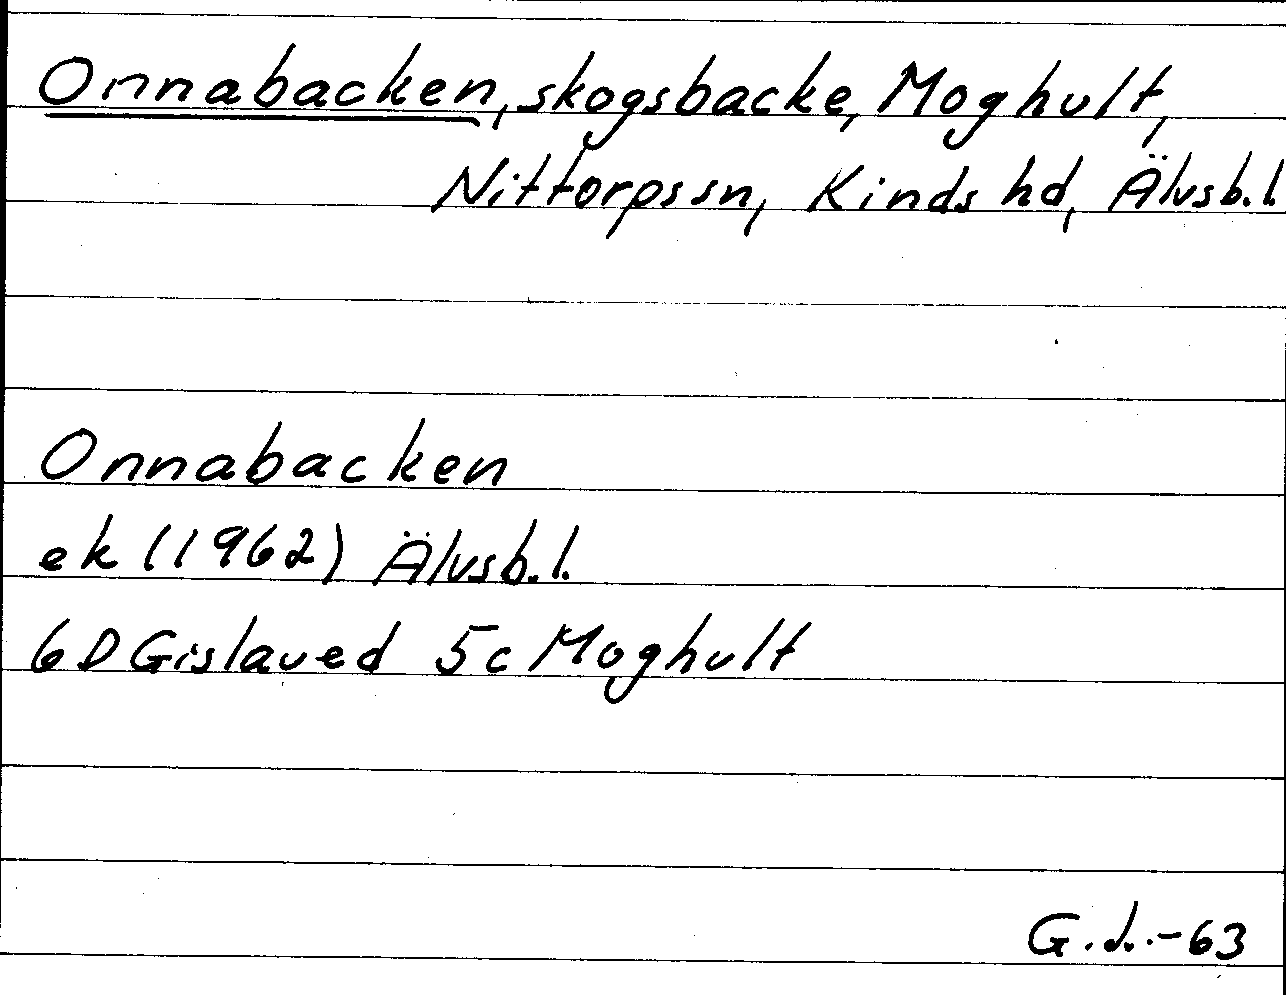 Onnabacken, skogsbacke, Moghult,
Nittorps sn, Kinds hd, Älvsb.l.
Onnabacken
ek (1962) Älvsb.l.
6D Gislaved 5c Moghult
G.d.-63